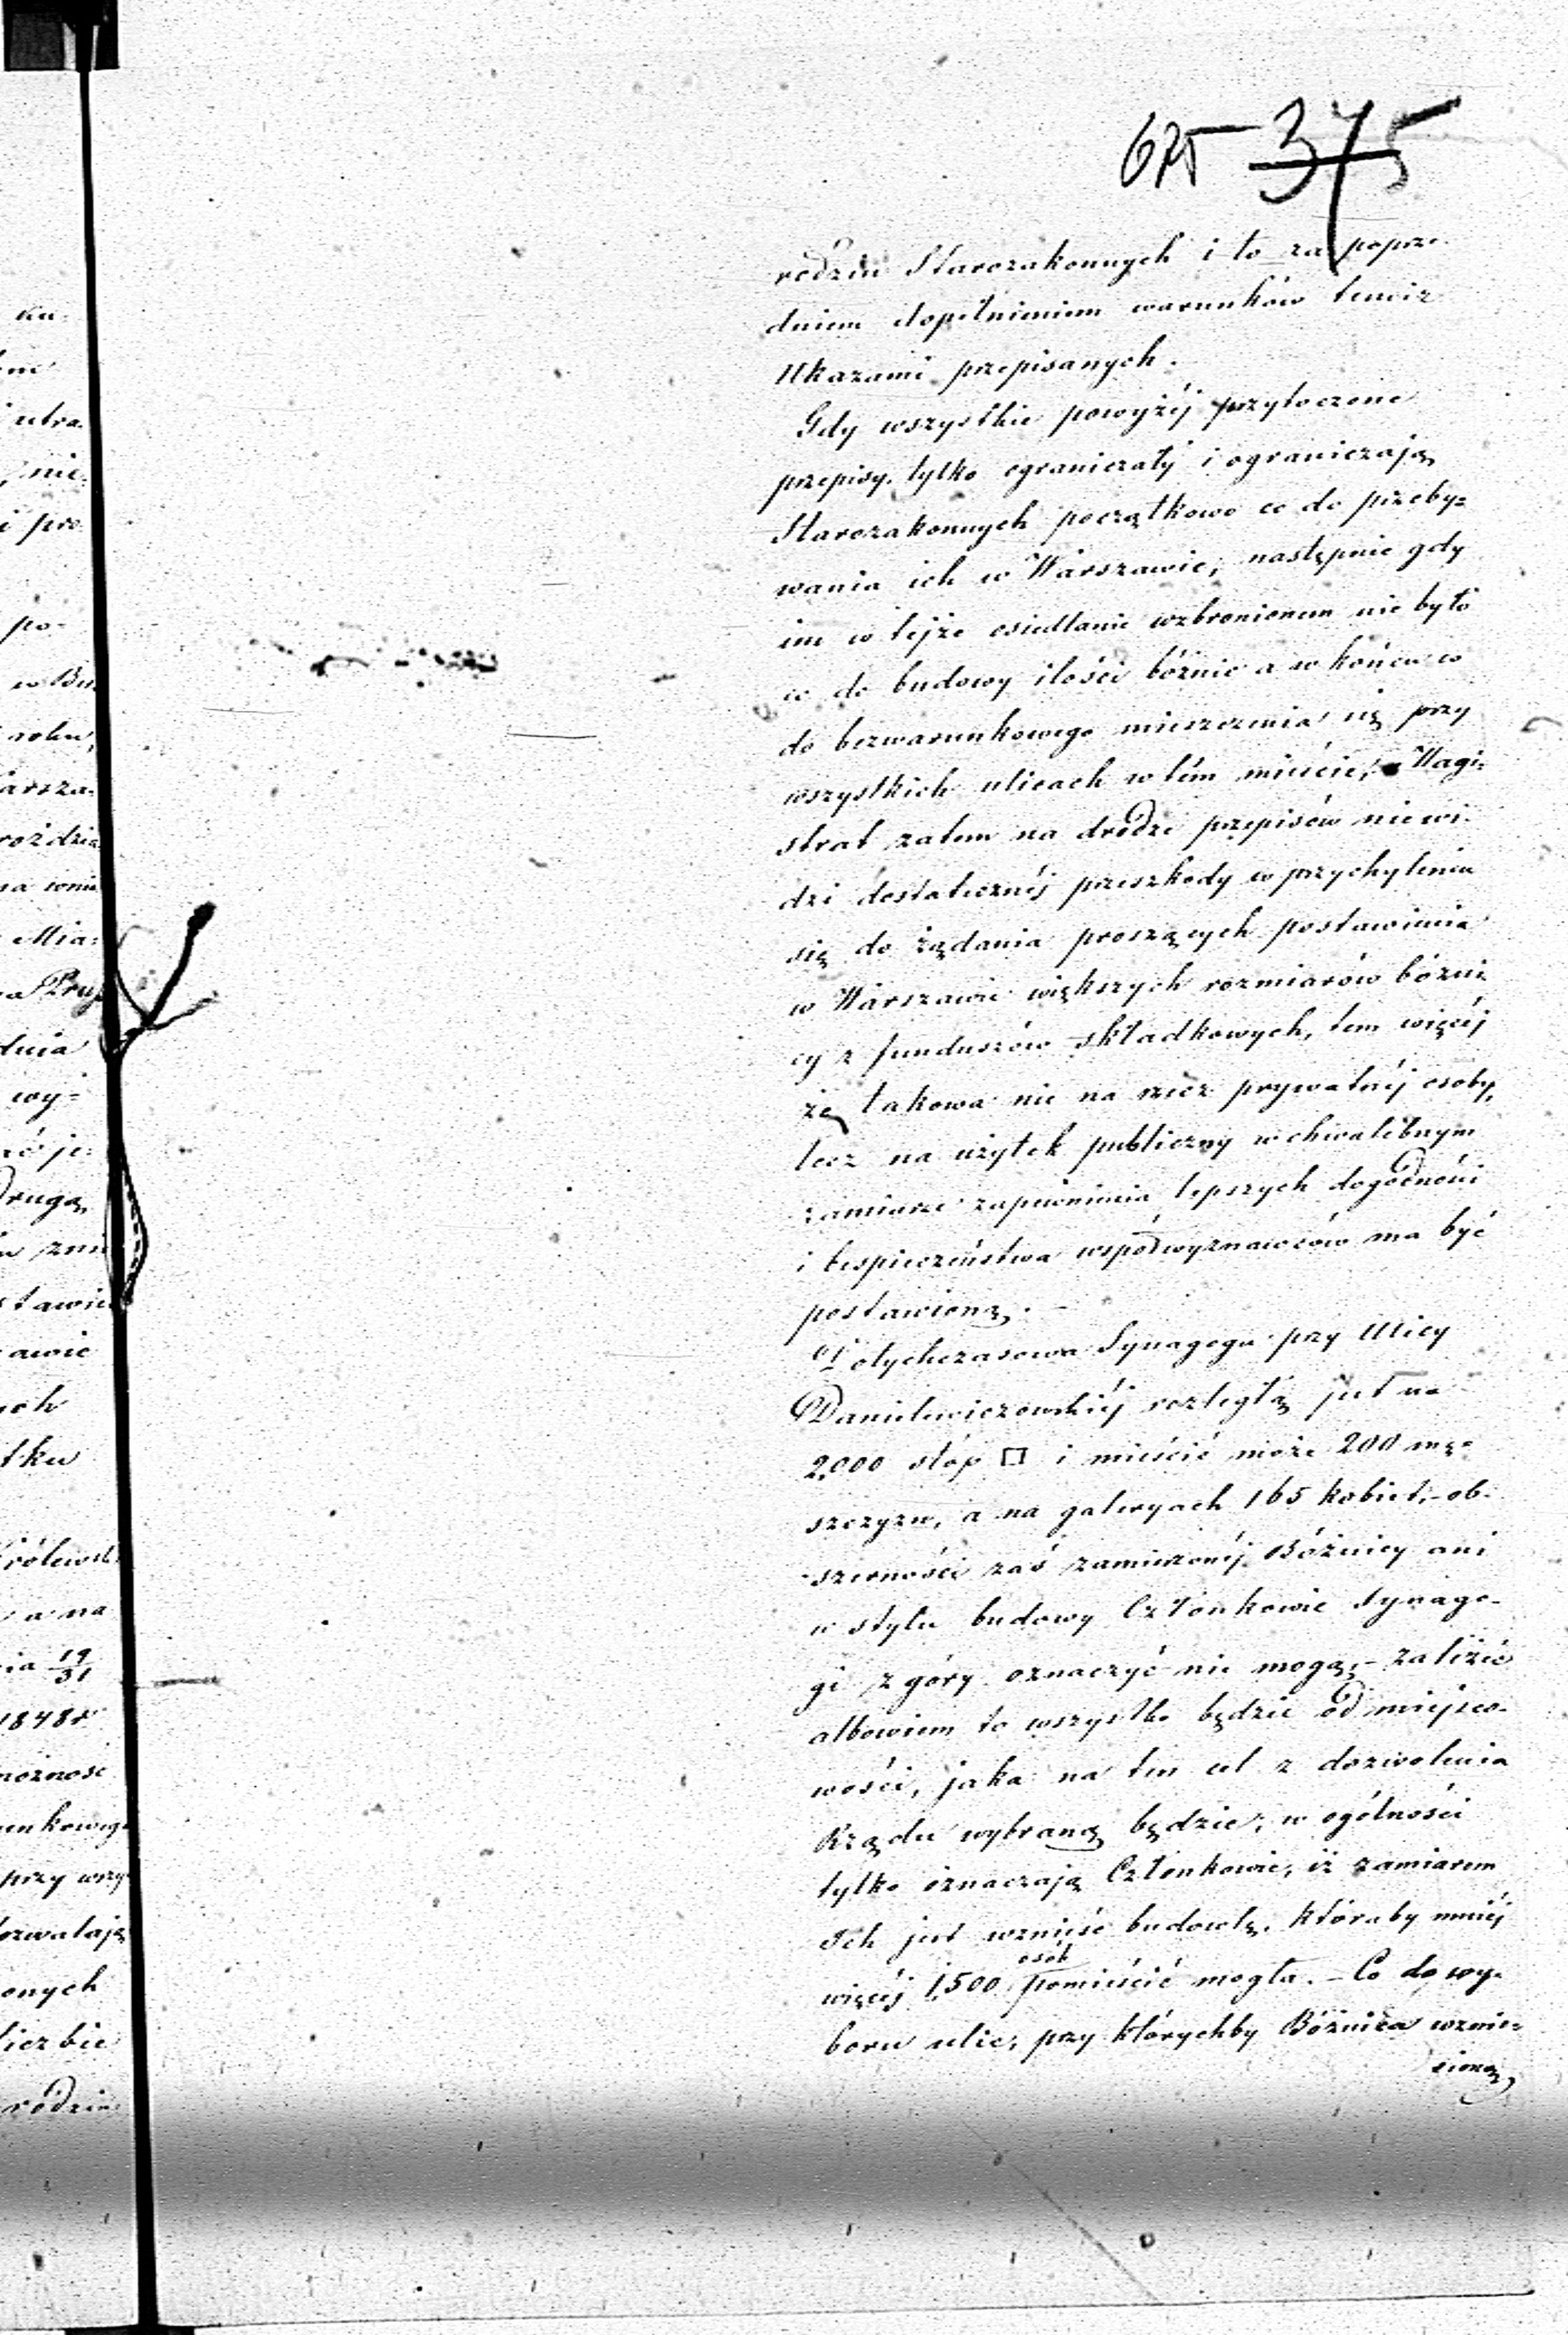 675 375
rodzin Starozakonnych i to za poprze-
dniem dopełnieniem warunków temiż
Ukazami przepisanych.
Gdy wszystkie powyżéj przytoczone
przepisy tylko ograniczały i ograniczają
Starozakonnych początkowo co do przeby=
wania ich w Warszawie, następnie gdy
im w tejże osiedlanie wzbronionem nie było
co do budowy ilości bóżnic a w końcu co
do bezwarunkowego mieszczenia się przy
wszystkich ulicach w tém mieście, Magi-
strat zatem na drodze przepisów nie wi-
dzi dostatecznéj przeszkody w przychyleniu
się do żądania proszących postawienia
w Warszawie większych rozmiarów bóżni
cy z funduszów składkowych, tem więcéj
że takowa nie na rzecz prywatnéj osoby,
lecz na użytek publiczny w chwalebnym
zamiarze zapewnienia lepszych dogodności
i bespieczeństwa współwyznawców ma być
postawioną. –
Dotychczasowa Synagoga przy Ulicy
Danielewiczowskiéj rozległą jest na
2,000 stóp □ i mieścić może 200 mę=
szczyzn, a na galeryach 165 kobiet, – ob-
szerności zaś zamierzonéj Bóżnicy ani
w stylu budowy Członkowie Synago-
gi z góry oznaczyć nie mogą, – zależéć
albowiem to wszystko będzie od miejsco-
wości, jaka na ten cel z dozwolenia
Rządu wybraną będzie; w ogólności
tylko oznaczają Członkowie, iż zamiarem
Ich jest wznieść budowlę, któraby mniéj
więcéj 1,500 osób pomieścić mogła. – Co do wy-
boru ulic, przy którychby Bóżnica wznie=
sioną,
ku-
utra-
nie-
i pro
po-
w Bu
roku,
arsza-
rozdzia
na wnio
Mia-
na Prus
dnia
wy-
ać je-
Drugą,
stawie
awie
ach
tku
rólewsk
a na
nia 19/31
1848r
możność
unkoweg
przy wszy
ozwalają
onych
liczbie
rodzin